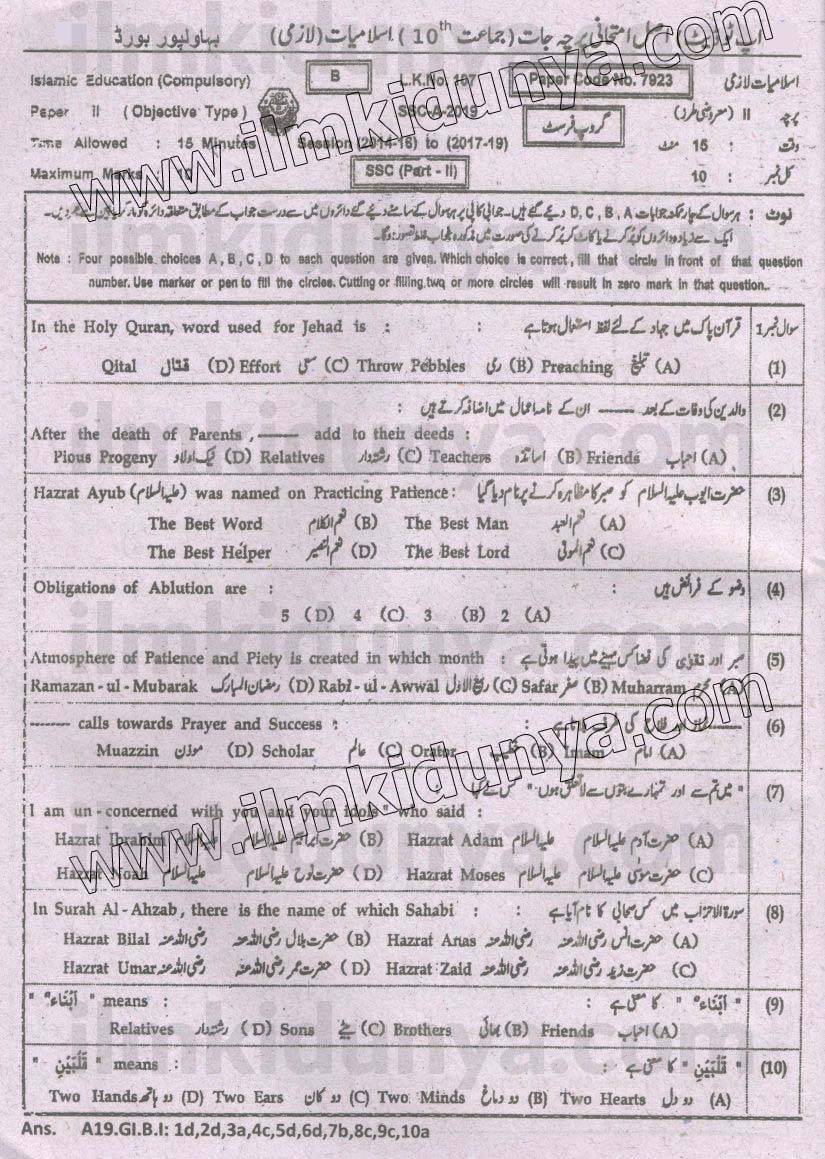 اپ ٹو ڈیٹ اصل امتحانی پرچہ جات (جماعت 10th) اسلامیات (لازمی) بہاولپور بورڈ
Islamic Education (Compulsory) B L.K.No. 167 Paper Code No. 7923 اسلامیات لازمی
Paper II (Objective Type) SSC-A-2019 پرچہ II (معروضی طرز)
Time Allowed : 15 Minutes Session (2014-16) to (2017-19) گروپ فرسٹ وقت : 15 منٹ
Maximum Marks : 10 SSC (Part - II) کل نمبر : 10
نوٹ : ہر سوال کے چار ممکنہ جوابات D, C, B, A دیئے گئے ہیں۔ جوابی کاپی پر ہر سوال کے سامنے دیئے گئے دائروں میں سے درست جواب کے مطابق متعلقہ دائرہ کو مارکر یا پین سے بھر دیں۔
ایک سے زیادہ دائروں کو پُر کرنے یا کاٹ کر پُر کرنے کی صورت میں مذکورہ جواب غلط تصور ہوگا۔
Note : Four possible choices A , B , C , D to each question are given. Which choice is correct , fill that circle in front of that question
number. Use marker or pen to fill the circles. Cutting or filling two or more circles will result in zero mark in that question..
In the Holy Quran, word used for Jehad is : : قرآن پاک میں جہاد کے لئے لفظ استعمال ہوتا ہے سوال نمبر 1
Qital قتال (D) Effort سعی (C) Throw Pebbles رمی (B) Preaching تبلیغ (A) (1)
والدین کی وفات کے بعد ------ ان کے نامہ اعمال میں اضافہ کرتے ہیں : (2)
After the death of Parents , ------ add to their deeds :
Pious Progeny نیک اولاد (D) Relatives رشتہ دار (C) Teachers اساتذہ (B) Friends احباب (A)
Hazrat Ayub (علیہ السلام) was named on Practicing Patience : حضرت ایوب علیہ السلام کو صبر کا مظاہرہ کرنے پر نام دیا گیا (3)
The Best Word نعم الکلام (B) The Best Man نعم العبد (A)
The Best Helper نعم النصیر (D) The Best Lord نعم المولیٰ (C)
Obligations of Ablution are : : وضو کے فرائض ہیں (4)
5 (D) 4 (C) 3 (B) 2 (A)
Atmosphere of Patience and Piety is created in which month : صبر اور تقویٰ کی فضا کس مہینے میں پیدا ہوتی ہے (5)
Ramazan - ul - Mubarak رمضان المبارک (D) Rabi - ul - Awwal ربیع الاول (C) Safar صفر (B) Muharram محرم (A)
------ calls towards Prayer and Success : اور فلاح کی طرف (6)
Muazzin موذن (D) Scholar عالم (C) Orator خطیب (B) Imam امام (A)
" میں تم سے اور تمہارے بتوں سے لا تعلق ہوں " کس نے کہا (7)
I am un - concerned with you and your idols" who said :
Hazrat Ibrahim حضرت ابراہیم علیہ السلام (B) Hazrat Adam حضرت آدم علیہ السلام (A)
Hazrat Noah حضرت نوح علیہ السلام (D) Hazrat Moses حضرت موسیٰ علیہ السلام (C)
In Surah Al - Ahzab , there is the name of which Sahabi : : سورۃ الاحزاب میں کس صحابی کا نام آیا ہے (8)
Hazrat Bilal رضی اللہ عنہ حضرت بلال رضی اللہ عنہ (B) Hazrat Anas رضی اللہ عنہ حضرت انس رضی اللہ عنہ (A)
Hazrat Umar رضی اللہ عنہ حضرت عمر رضی اللہ عنہ (D) Hazrat Zaid رضی اللہ عنہ حضرت زید رضی اللہ عنہ (C)
" اَبْنَاءَ " means : : " اَبْنَاءَ " کا معنی ہے (9)
Relatives رشتہ دار (D) Sons بیٹے (C) Brothers بھائی (B) Friends احباب (A)
" قَلْبَيْنِ " means : : " قَلْبَيْنِ " کا معنی ہے (10)
Two Hands دو ہاتھ (D) Two Ears دو کان (C) Two Minds دو دماغ (B) Two Hearts دو دل (A)
Ans. A19.GI.B.I: 1d,2d,3a,4c,5d,6d,7b,8c,9c,10a
www.ilmkidunya.com
www.ilmkidunya.com
ilmkidunya.com